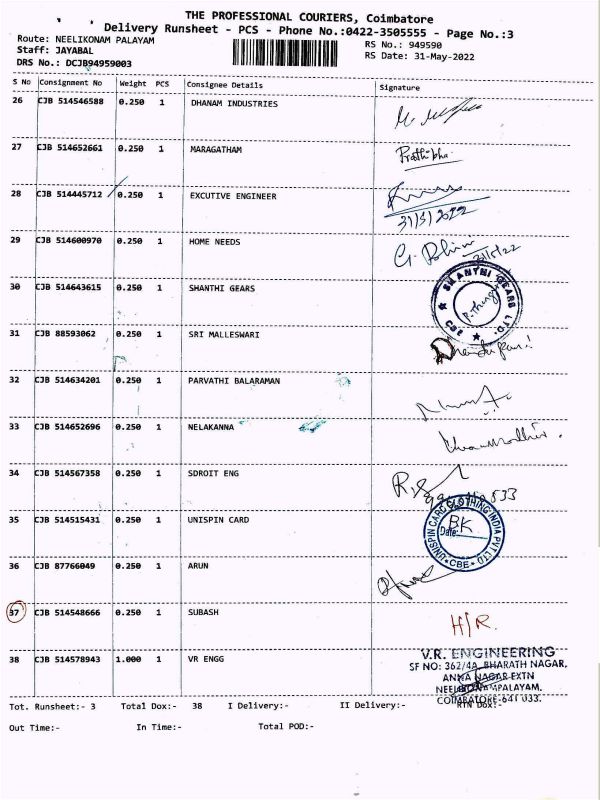 THE PROFESSIONAL COURIERS, Coimbatore
Delivery Runsheet - PCS - Phone No.:0422-3505555 - Page No.:3
Route: NEELIKONAM PALAYAM RS No.: 949590
Staff: JAYABAL RS Date: 31-May-2022
DRS No.: DCJB94959003
S No Consignment No Weight PCS Consignee Details Signature
26 CJB 514546588 0.250 1 DHANAM INDUSTRIES
27 CJB 514652661 0.250 1 MARAGATHAM Prathibha
28 CJB 514445712 0.250 1 EXCUTIVE ENGINEER
31/5/2022
29 CJB 514600970 0.250 1 HOME NEEDS
31/5/22
30 CJB 514643615 0.250 1 SHANTHI GEARS
SHANTHI GEARS LTD. CBE
31 CJB 88593062 0.250 1 SRI MALLESWARI
32 CJB 514634201 0.250 1 PARVATHI BALARAMAN
33 CJB 514652696 0.250 1 NELAKANNA
34 CJB 514567358 0.250 1 SDROIT ENG
35 CJB 514515431 0.250 1 UNISPIN CARD
UNISPIN CARD CLOTHING INDIA PVT LTD
BK
Date:
CBE
36 CJB 87766049 0.250 1 ARUN
37 CJB 514548666 0.250 1 SUBASH H/R.
38 CJB 514578943 1.000 1 VR ENGG
V.R. ENGINEERING
SF NO: 362/4A, BHARATH NAGAR,
ANNA NAGAR EXTN
NEELIKONAMPALAYAM,
COIMBATORE-641 033.
Tot. Runsheet:- 3 Total Dox:- 38 I Delivery:- II Delivery:- RTN Dox:-
Out Time:- In Time:- Total POD:-